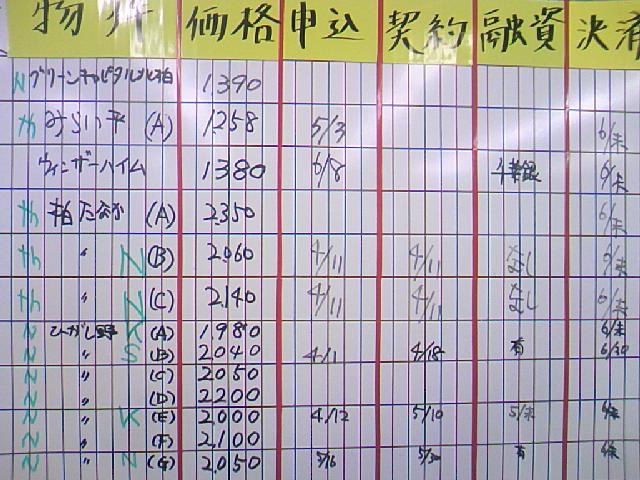 物件 価格 申込 契約 融資 決済
N グリーンキャピタル 柏 1.390
th (A) 1.258 5/3 6/末
ウィンザーハイム 1380 6/8 6/末
th 柏 (A) 2.350 6/末
th 〃 N (B) 2.060 4/11 4/11 なし 6/末
th 〃 N (C) 2.140 4/11 4/11 なし 6/末
N ひがし野 K (A) 1.980 6/末
N 〃 S (B) 2040 4/1 4/18 有 6/30
N 〃 (C) 2050
N 〃 (D) 2200
N 〃 K (E) 2.000 4/12 5/10 5/末 6/末
N 〃 (F) 2.100 6/末
N 〃 N (G) 2.050 5/16 5/30 有 6/末